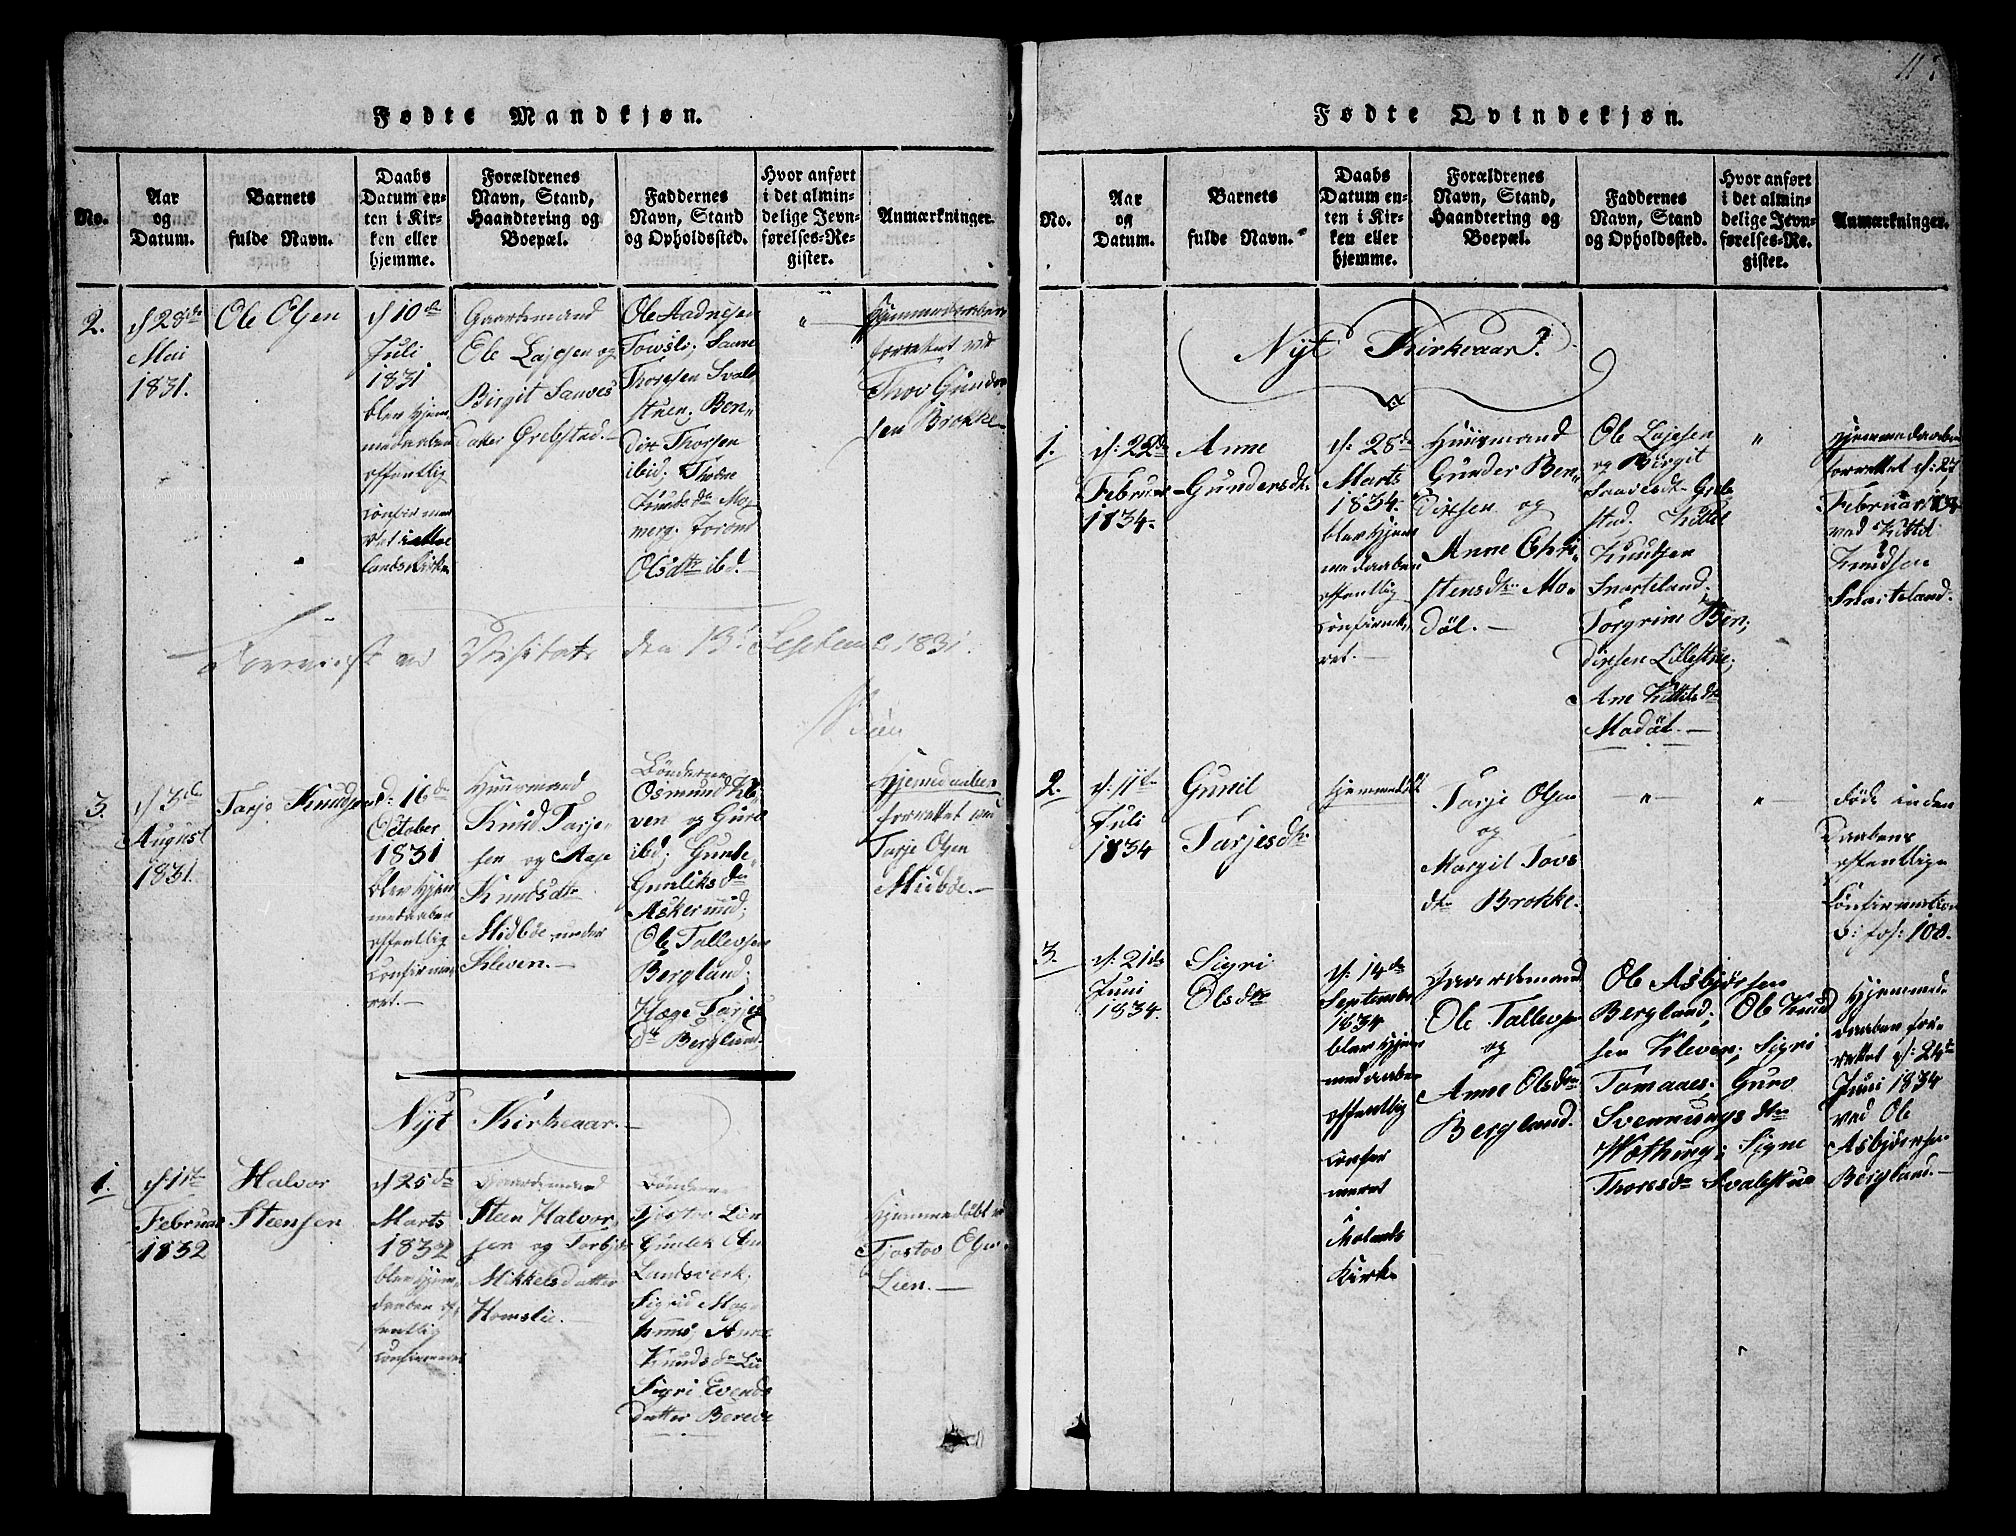 Fødte Mandkjøn.
No.
Aar
og
Datum.
Barnets
fulde Navn.
Daabs
Datum en-
ten i Kir-
ken eller
hjemme.
Forældrenes
Navn, Stand,
Haandtering og
Boepæl.
Faddernes
Navn, Stand
og Opholdssted.
Hvor anført
i det almin-
delige Jevn-
førelses-Re-
gister.
Anmærkninger.
2.
d 28de
Mai
1831.
Ole Olsen
d 10de
Juli
1831
blev hjem
medaaben
offentlig
confirme
ret i
lands Kirke
Gaardmand
Ole Lajesen og
Birgit Saaves
datter Grebstad.
Ole Aadnesen
Tovsli; Saave
Thoresen Sval
stuen; Ben
dix Thorsen
ibid;
Knuds dr Mo
berg. Torbor
Olsdtr ibd.
"
Hjemmedaaben
forrettet ved
Thov Gunder
sen Brokke
ved Visitats den 13de September 1831.
3.
d 3de
August
1831.
Tarje Knudsen
d: 16de
October
1831
blev hjem
medaaben
offentlig
confirme
ret.
Huusmand
Knud Tarje
sen og Aase
Knudsdtr
Midbøe under
Kleven.
Bønderne
Osmund Kle
ven og Guro
ibd; Gunle
Gunliks dr
Askerund;
Ole Tallevsen
Bergland;
Hæge Tarjes
dr Bergland
Hjemedaaben
forrettet ved
Tarje Olsen
Midbøe.
Nyt Kirkeaar.
1.
d 1te
Februar
1832
Halvor
Steensen
d 25de
Marts
1832
blev hjem
daaben of
fentlig
confirmeret
Gaardemand
Steen Halvor
sen og Torbjør
Mikkelsdatter
Homslie.
Bønderne
Tjostov Lien
Gunlek Olsen
Landsverk;
Sigrid
Anne
Knuds dr Lie
Sigri Evends
datter Berede
Hjemmedøbt ved
Tjostov Olsen
Lien.
117
Fødte Qvindekjøn.
No.
Aar
og
Datum.
Barnets
fulde Navn.
Daabs
Datum en-
ten i Kir-
ken eller
hjemme.
Forældrenes
Navn, Stand,
Haandtering og
Boepæl.
Faddernes
Navn, Stand
og Opholdssted.
Hvor anført
i det almin-
delige Jevn-
førelses-Re-
gister.
Anmærkninger.
Nyt Kirkeaar.
1.
d: 22de
Februar
1834.
Anne
Gundersdtr
d: 28de
Marts
1834.
blev hjem
medaaben
offentlig
confirme
ret.
Huusmand
Gunder Ben
dixsen og
Anne Chri
stensdtr Mo
døl.
Ole Lajesen
og Birgit
Saavesdtr Greb
stad. Kittel
Knudsen
Snarteland;
Torgrim Ben
dixsen Lillestue;
Ane Kittels dtr
Modøl.
"
Hjemmedaaben
forrettet d: 27
Februar 1834
ved Kittel
Knudsen
Snarteland.
2.
d. 11te
Juli
1834
Gunil
Tarjesdtr
Hjemmedøbt
Tarje Olsen
og
Margit Tovs
dtr Brokke.
"
"
Døde inden
Daabens
offentlige
Confirmation
s: fol: 108.
3.
d. 21de
Juni
1834.
Sigri
Olsdtr
d: 14de
September
1834
blev hjem
medaaben
offentlig
confir
meret
i
Molands
Kirke
Gaardemand
Ole Tallevsen
og
Anne Olsdtr
Bergland.
Ole Asbjørsen
Bergland; Ole Knud
sen Kleven; Sigri
Tomaaes; Guro
Svennungsdtr
Wæting; Signe
Thoresdr Svalestue
Hjemme
daaben for
rettet d: 24de
Juni 1834
ved Ole
Asbjørsen
Bergland.